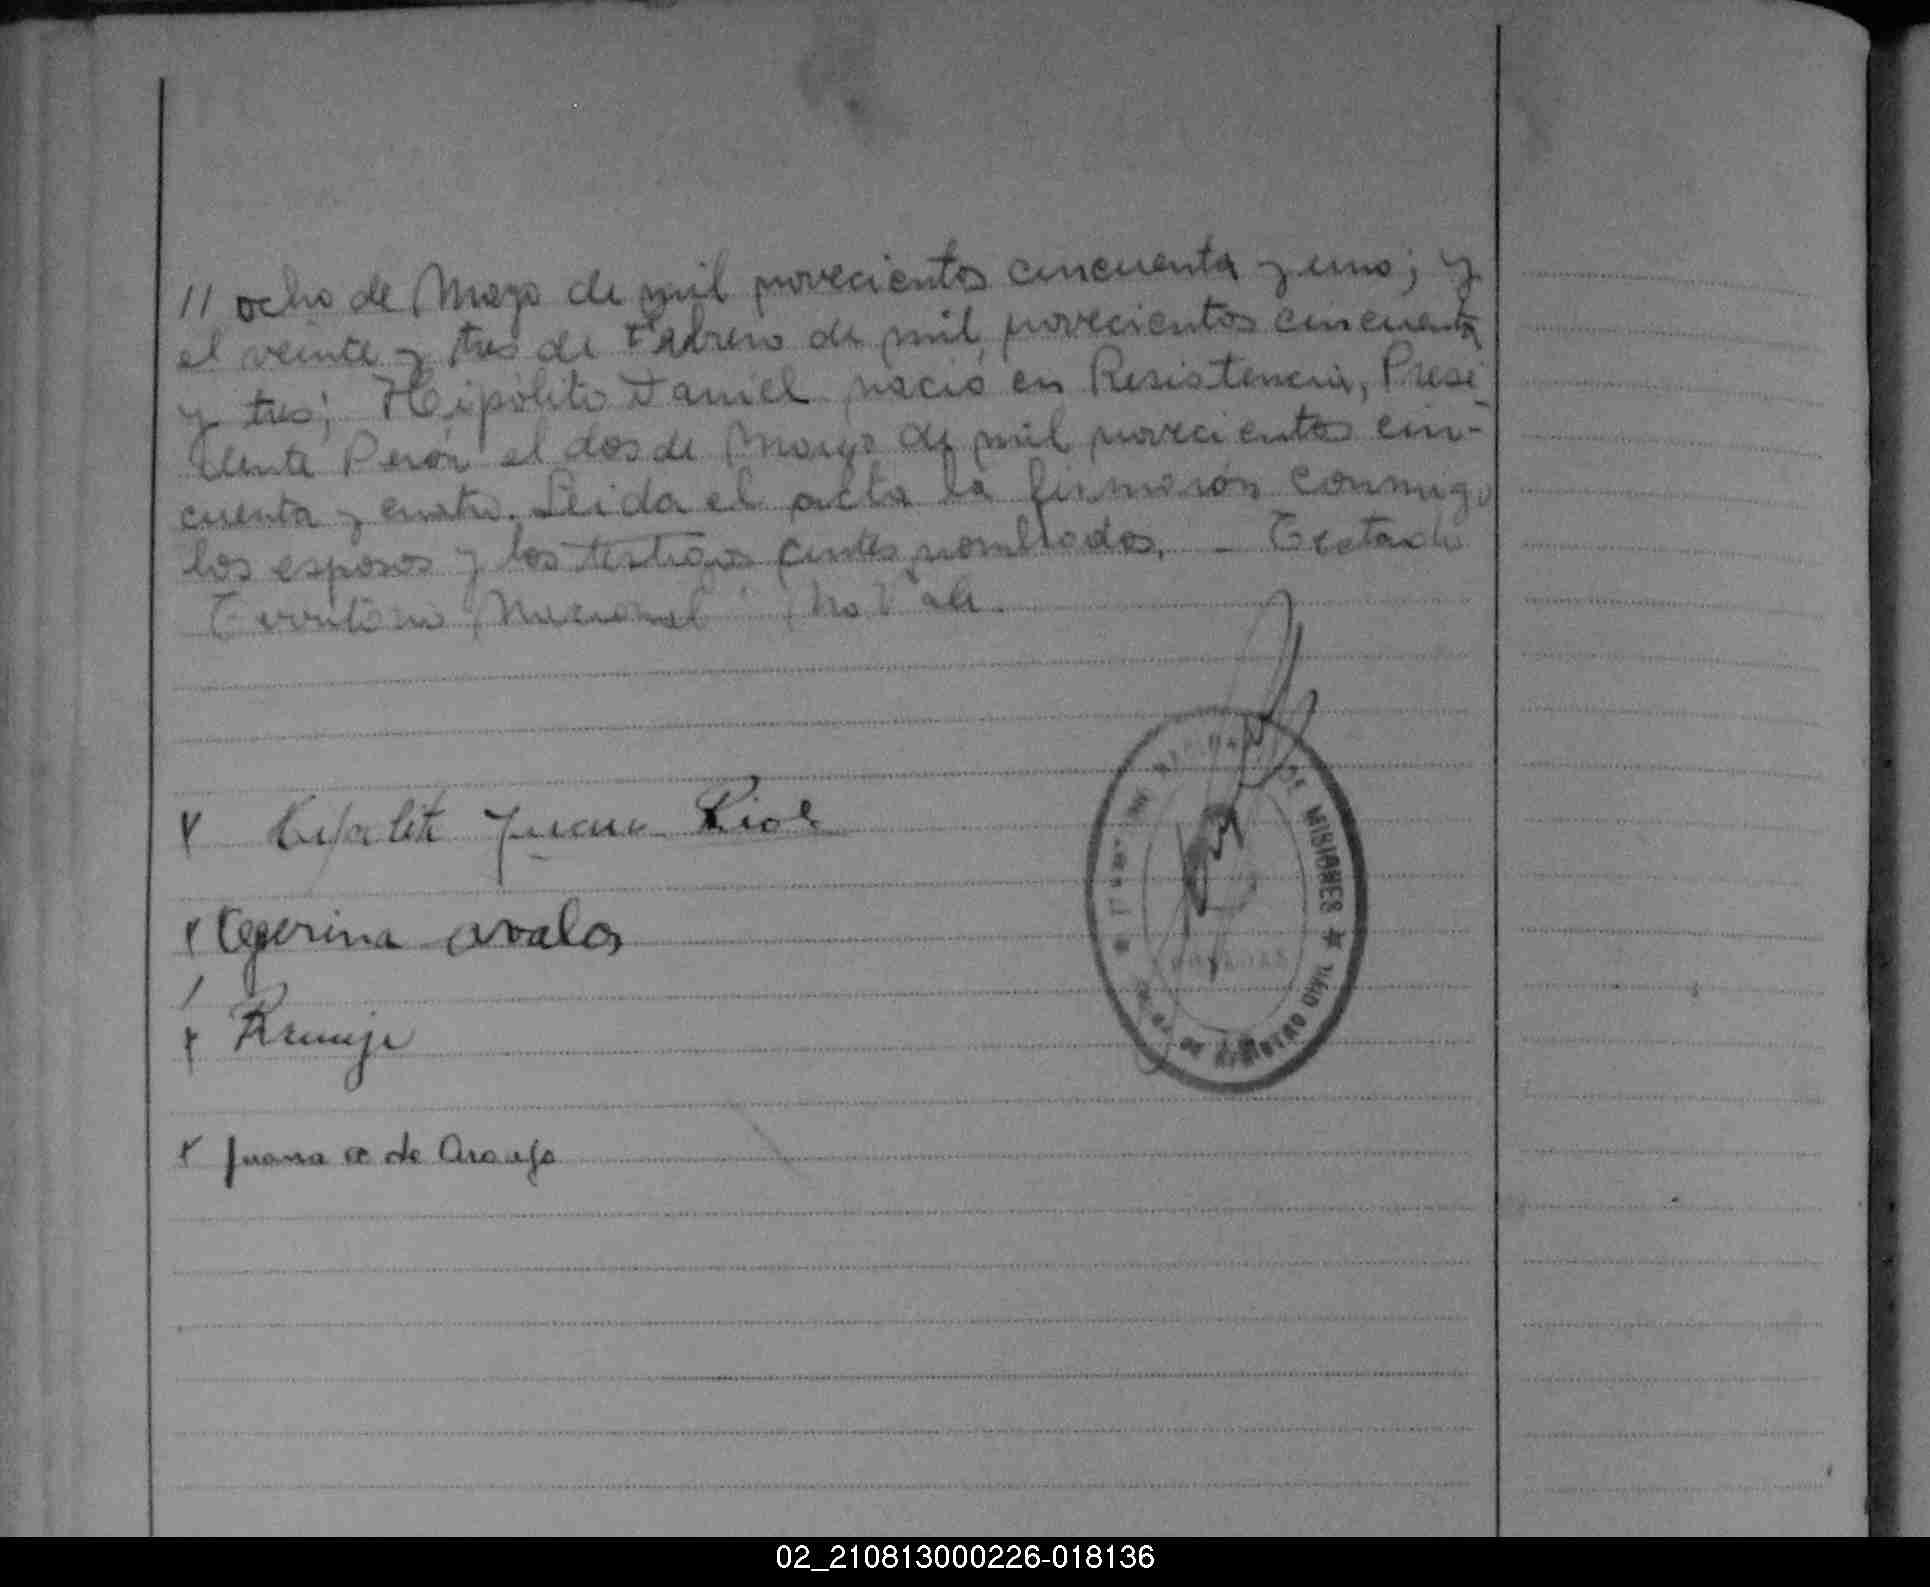 // ocho de Mayo de mil novecientos cincuenta y uno; y
el veinte y tres de Febrero de mil novecientos cincuenta
y tres; Hipólito Daniel nació en Resistencia, Presi
dente Perón el dos de Mayo de mil novecientos cin-
cuenta y cuatro. Leida el acta la firmarón conmigo
los esposos y los testigos antes nombrados. - Testado
Territorio Nacional No Vale.
DE MISIONES
DE REGISTRO CIVIL
POSADAS
Juan
avalos
Juana a de Araujo
02_210813000226-018136